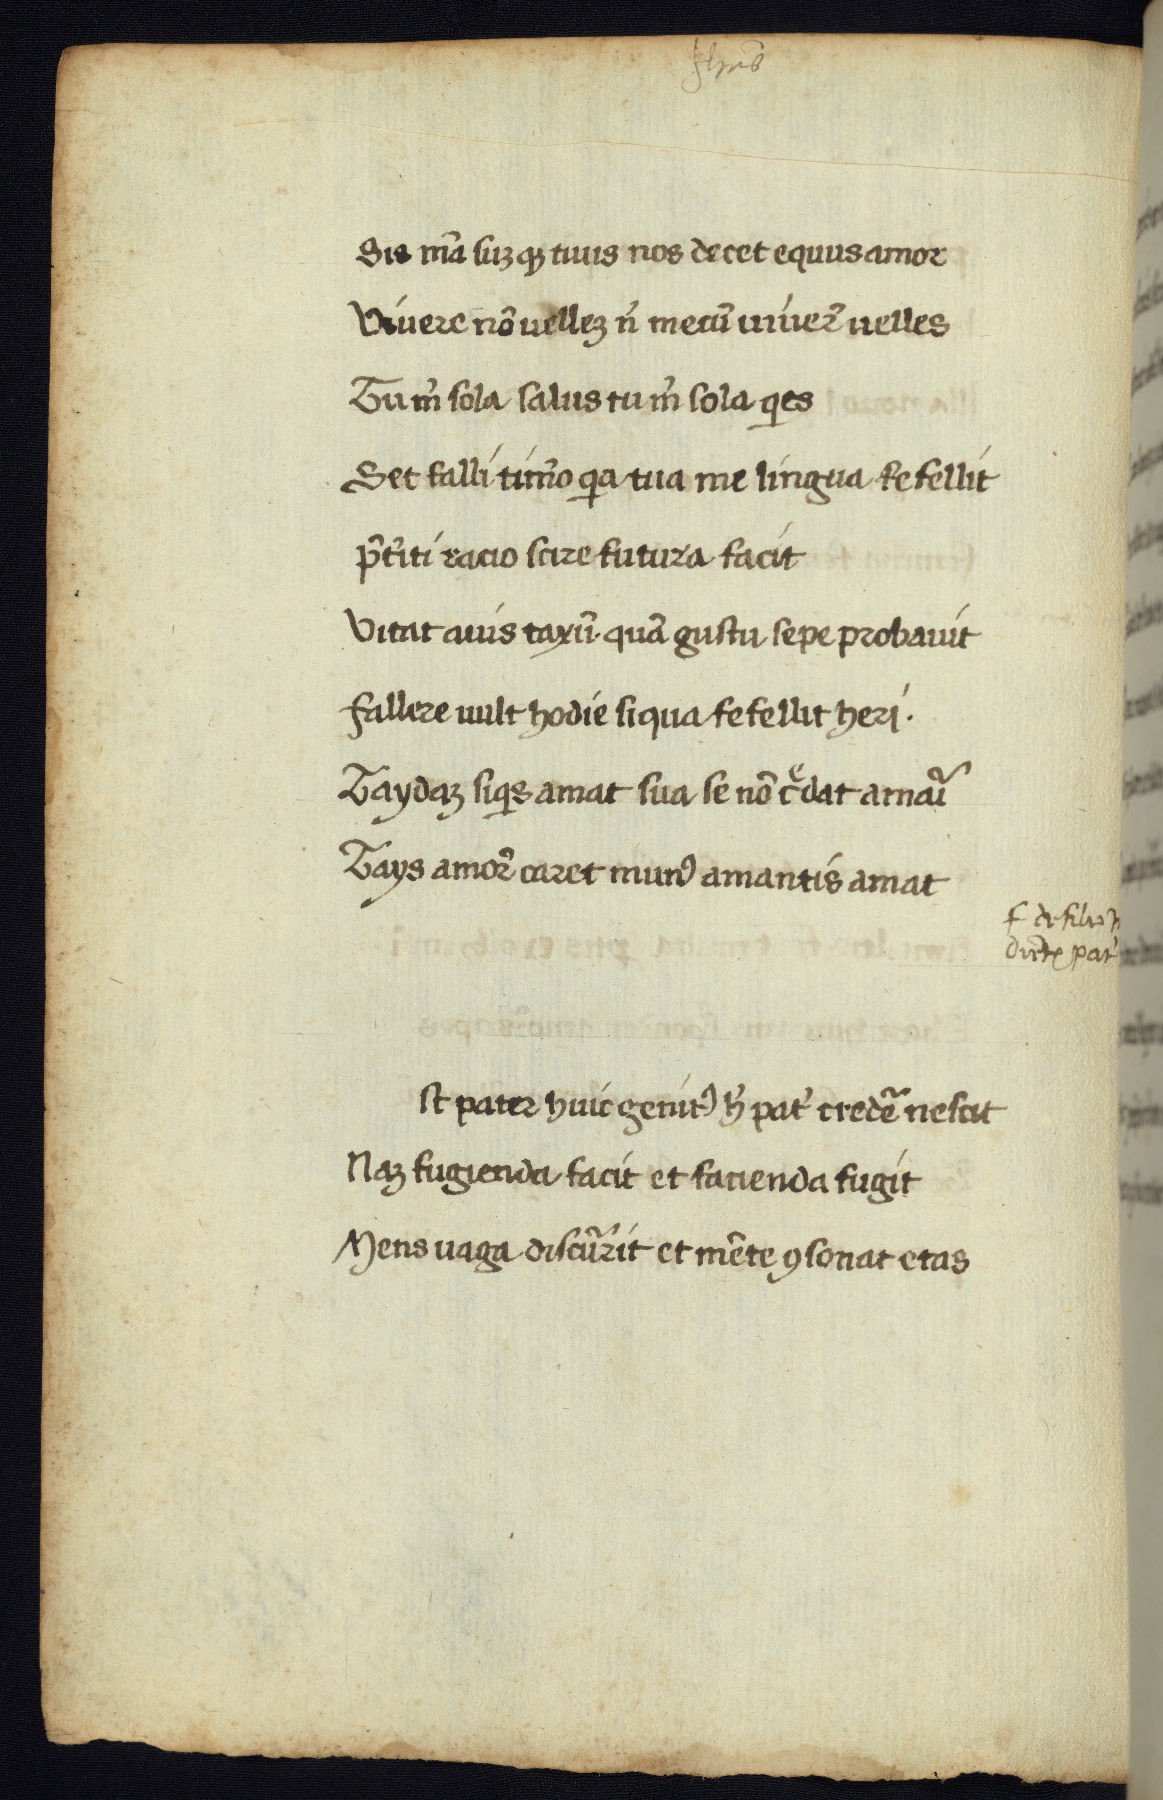 Sis mā̄ suꝫ qꝫ tuus nos decet equus amor
Viuere nō uelleꝫ ñ mecū uiuer̄ uelles
Tu m̄ sola salus tu m̄ sola q̄es
Set falli tim̄o q̄a tua me lingua fefellit
p̄t̄iti racio scire futura facit
Vitat auis taxū. quā gustu sepe probauit
fallere uult hodie siqua fefellit heri.
Taydaꝫ siq̄s amat sua se nō c̄dat amaī
Tays amor̄ caret munꝰ amantis amat
f de filio
st pater huic genitꝰ ħ pat̄ credē nescit
Naꝫ fugienda facit et facienda fugit
Mens uaga discūrit et mēte ꝯsonat etas